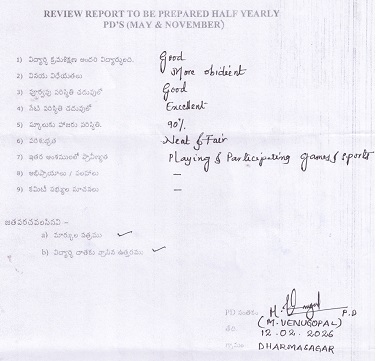 REVIEW REPORT TO BE PREPARED HALF YEARLY
PD'S (MAY & NOVEMBER)
1) విద్యార్థి క్రమశిక్షణ అందరి విద్యార్థులది. Good
2) వినయ విధేయతలు More obidient
3) పూర్వపు పరిస్థితి చదువులో Good
4) నేటి పరిస్థితి చదువులో Excellent
5) స్కూలుకు హాజరు పరిస్థితి. 90%
6) పరిశుభ్రత Neat & Fair
7) ఇతర అంశములలో ప్రావీణ్యత Playing & Participating Games & Sports
8) అభిప్రాయాలు / సలహాలు –
9) కమిటీ సభ్యుల సూచనలు –
జతపరచవలసినవి –
a) మార్కుల పత్రము ✓
b) విద్యార్థి దాతకు వ్రాసిన ఉత్తరము ✓
PD సంతకం P.D
(M. VENUGOPAL)
తేది: 12-02-2026
స్థలం: DHARMASAGAR